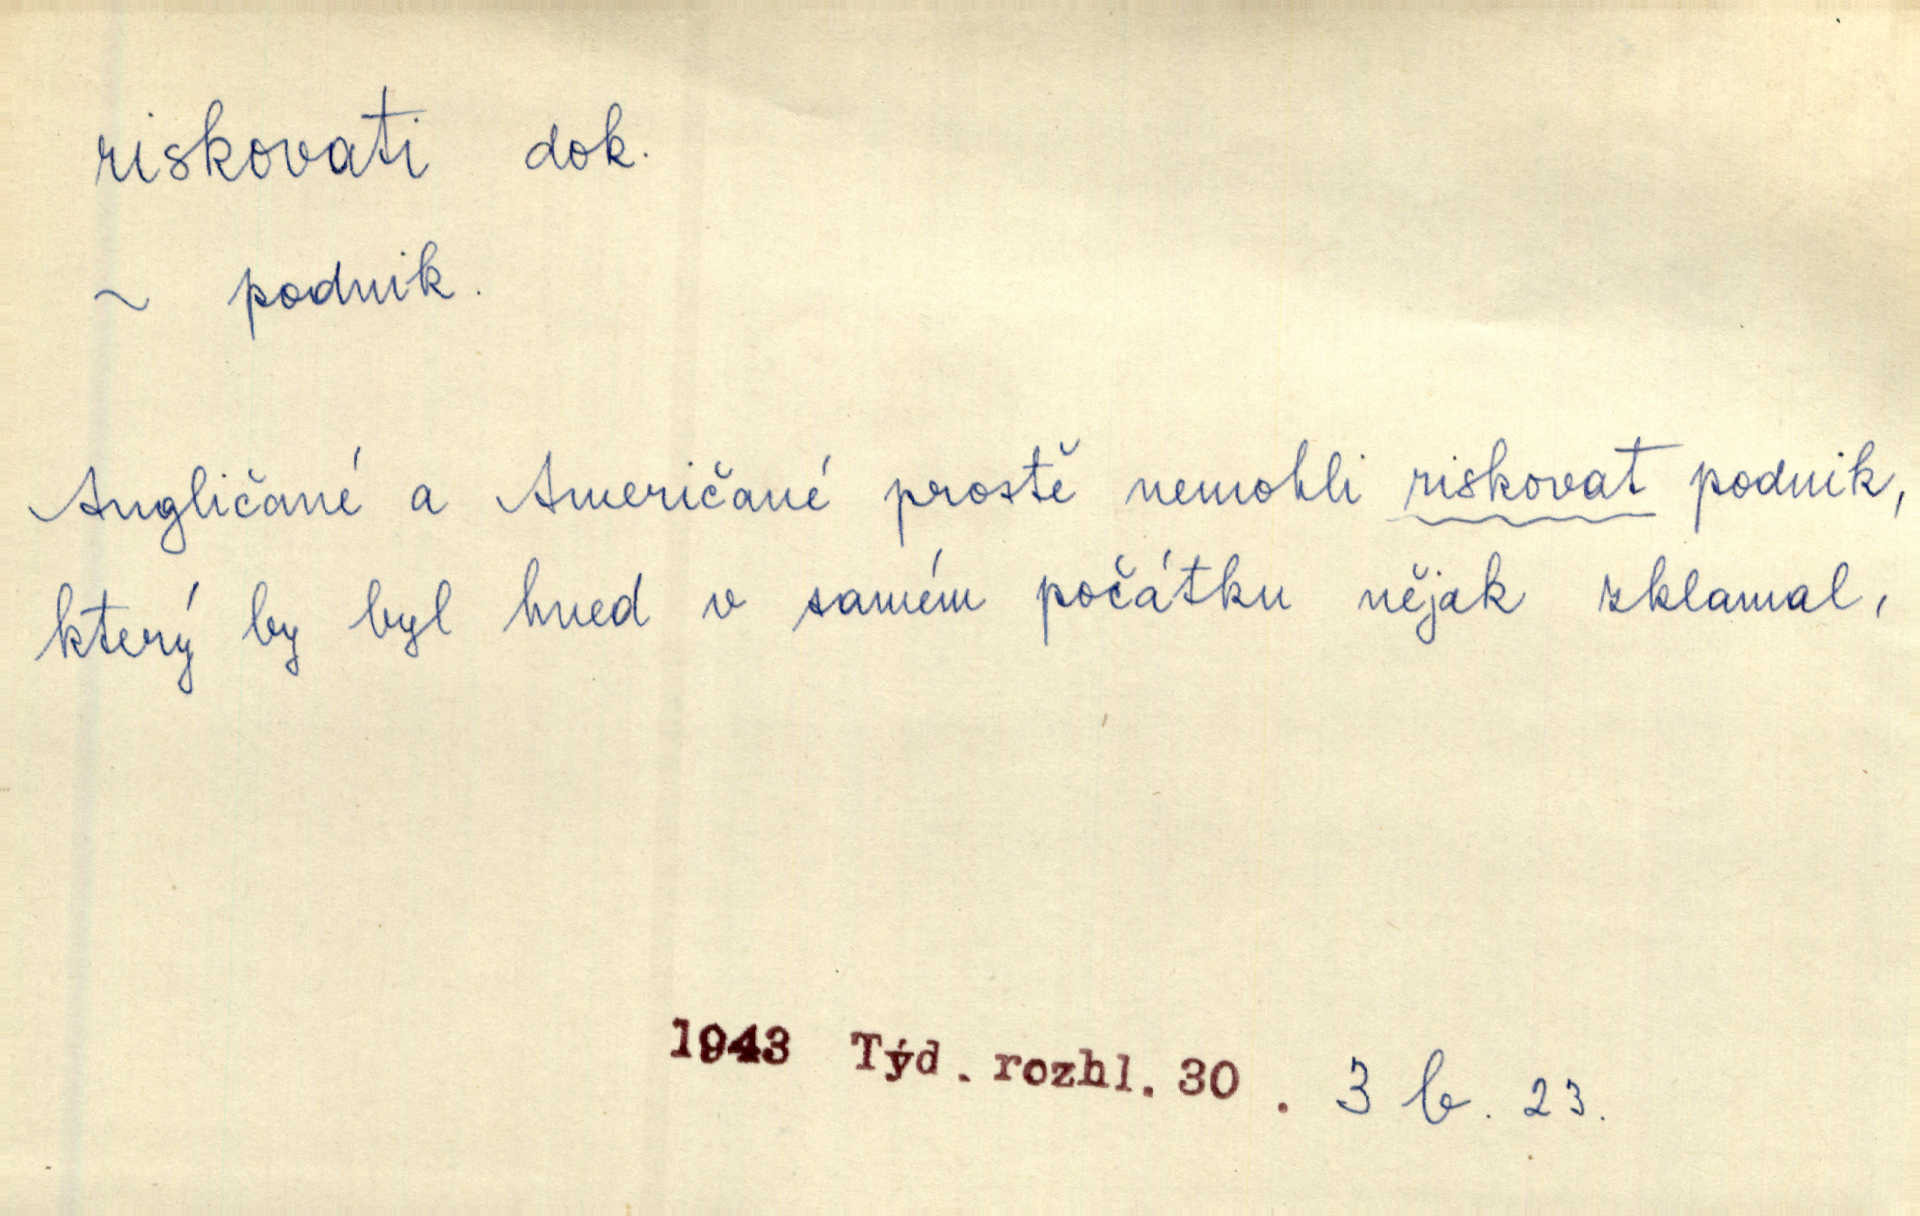 riskovati dok.
~ podnik.
Angličané a Američané prostě nemohli riskovat podnik,
který by byl hned v samém počátku nějak zklamal,
1943 Týd. rozhl. 30. 3 b. 23.